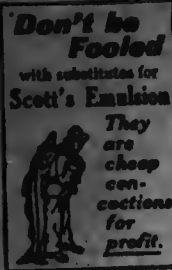 Don't be
Fooled
with substitutes for
Scott's Emulsion
They
are
cheap
con-
coctions
for
profit.